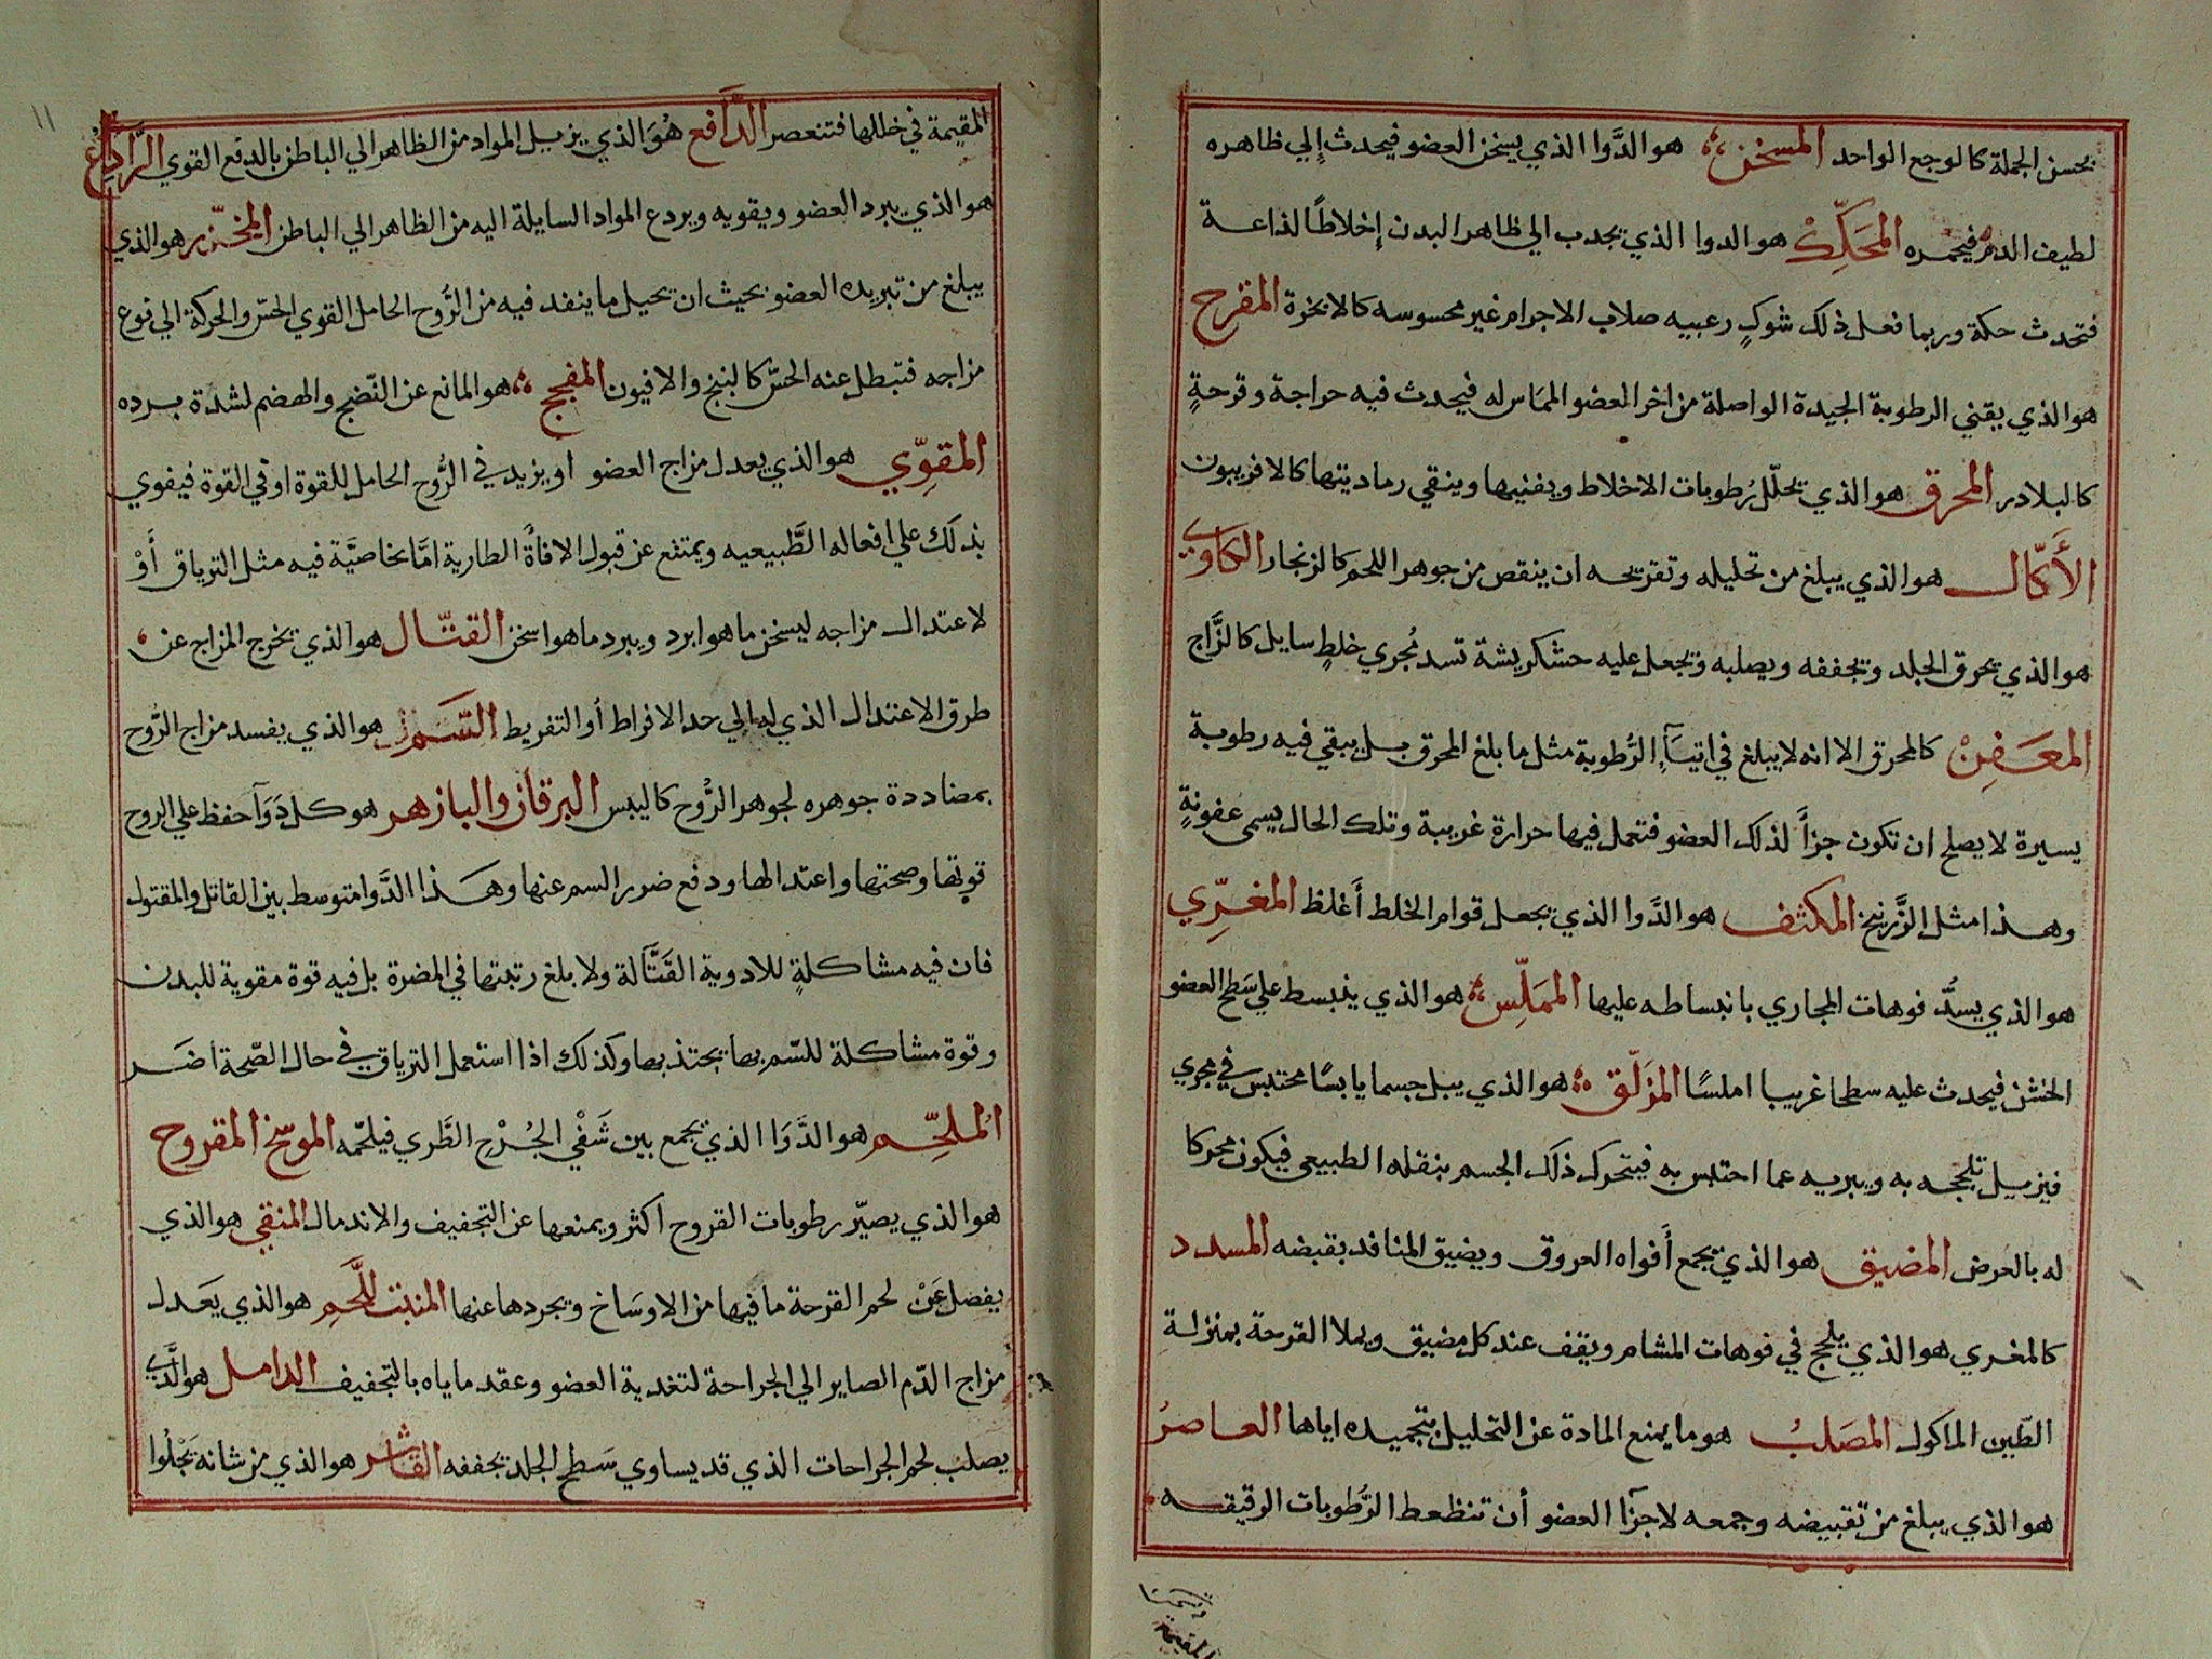 بحسن الجملة كالوجع الواحد المسخن هو الدَّوا الذي يسخن العضو فيحدث إلي ظاهره
لطيف الدم فيحمره المحَكِّك هو الدوا الذي يجدب الي ظاهر البدن إخلاطًا لذاعة
فتحدث حكة وربما فعل ذلك شوكٍ رعبيه صلاب الاجرام غير محسوسه كالابخرة المقرح
هو الذي يقني الرطوبة الجيدة الواصلة من اخر العضو المماس له فيحدث فيه حراجة وقرحةٍ
كالبلادر المحرق هو الذي يحلّل رُطوبات الاخلاط ويفنيها وينقي رماديتها كالافربيون
الأَكّال هو الذي يبلغ من تحليله وتقريحه ان ينقص من جوهر اللحم كالزنجار الكاوي
هو الذي يحرق الجلد ويجففه ويصلبه ويجعل عليه حشكريشة تسد مُجري خلطٍ سايل كالزَّاج
المعَفِنْ كالمحرق الا انه لا يبلغ في الرُّطوبة مثل ما بلغ المحرق بل يبقي فيه رطوبة
يسيرة لا يصلح ان تكون جزأً لذلك العضو فتعمل فيها حرارة غريبة وتلك الحال يسمي عفونةٍ
وهذا مثل الزَّرنيخ المكثف هو الدَّوا الذي يجعل قوام الخلط أَغلظ المغرِّي
هو الذي يسدُّ فوهات المجاري بانبساطه عليها المملِّس هو الذي ينبسط علي سَطح العضو
الخشن فيحدث عليه سطحا غريبا املسًا المزَلّق هو الذي يبل جسما يابسًا محتبس في مجري
فيزيل تلججه به ويبريه عما احتبس به فيتحرك ذلك الجسم بنقله الطبيعي فيكون محركا
له بالعرض المضيق هو الذي يجمع أَفواه العروق ويضيق المنافد بقبضه المسدد
كالمغري هو الذي يلجج في فوهات المشام ويقف عند كل مضيق ويملا القرحة بمنزلة
الطّين الماكول المصَلبُ هو ما يمنع المادة عن التحليل بتجميده اياها العاصرُ
هو الذي يبلغ من تقبيضه وجمعه لاجزآ العضو أن تنظعط الرُّطوبات الرقيقه
المقيمة
١١
المقيمة في خللها فتنعصر الدَّافع هُوَ الذي يزيل المواد من الظاهر الي الباطن بالدفع القوي الرَّادِعُ
هو الذي يبرد العضو ويقويه ويردع المواد السايلة اليه من الظاهر الي الباطن المخدّر هو الذي
يبلغ من تبريده العضو بحيث ان يحيل ما ينفد فيه من الرُّوح الحامل القوي الحسّ والحركة الي نوع
مزاجه فتبطل عنه الحسّ كالبنج والافيون المفجج هو المانع عن النّضج والهضم لشدّة برده
المقوِّي هو الذي يعدل مزاج العضو او يزيد في الرُّوح الحامل للقوة او في القوة فيقوي
بذلك علي افعاله الطَّبيعيه ويمتنع عن قبول الافاة الطارية امّا بخاصيَّة فيه مثل الترياق أَوْ
لاعتدال مزاجه ليسخن ما هو ابرد ويبرد ما هو اسخن القتّال هو الذي يخرج المزاج عن
طرق الاعتدال الذي له الي حد الافراط أو التفريط السَّم هو الذي يفسد مزاج الرّوح
بمضاددة جوهره لجوهر الرُّوح كالبيس البرقان والبازهر هو كل دَوَآ حفظ علي الروح
قوتها وصحتها واعتدالها ودفع ضرر السم عنها وهذا الدَّوا متوسط بين القاتل والمقتول
فان فيه مشاكلةٍ للادوية القَتَّالة ولا بلغ رتبتها في المضرة بل فيه قوة مقوية للبدن
وقوة مشاكلة للسّم بها يجتذبها وكذلك اذا استعمل الترياق في حال الصّحة اضَر
المُلحِّم هو الدَّوَا الذي يجمع بين شَفْي الجُرْحِ الطَّري فيلحّمه الموسخ المقروح
هو الذي يصيّر رطوبات القروح اكثر ويمنعها عن التجفيف والاندمال المنقي هو الذي
يفصل عَنْ لحم القرحة ما فيها من الاوسَاخ ويجردها عنها المنبت للَّحمِ هو الذي يَعدل
مزاج الدّم الصاير الي الجراحة لتغدية العضو وعقد ماياه بالتجفيف الدامل هو الَّذي
يصلب لحم الجراحات الذي قد يساوي سَطح الجلد بجففه القاشر هو الذي من شانه يَجْلُوا